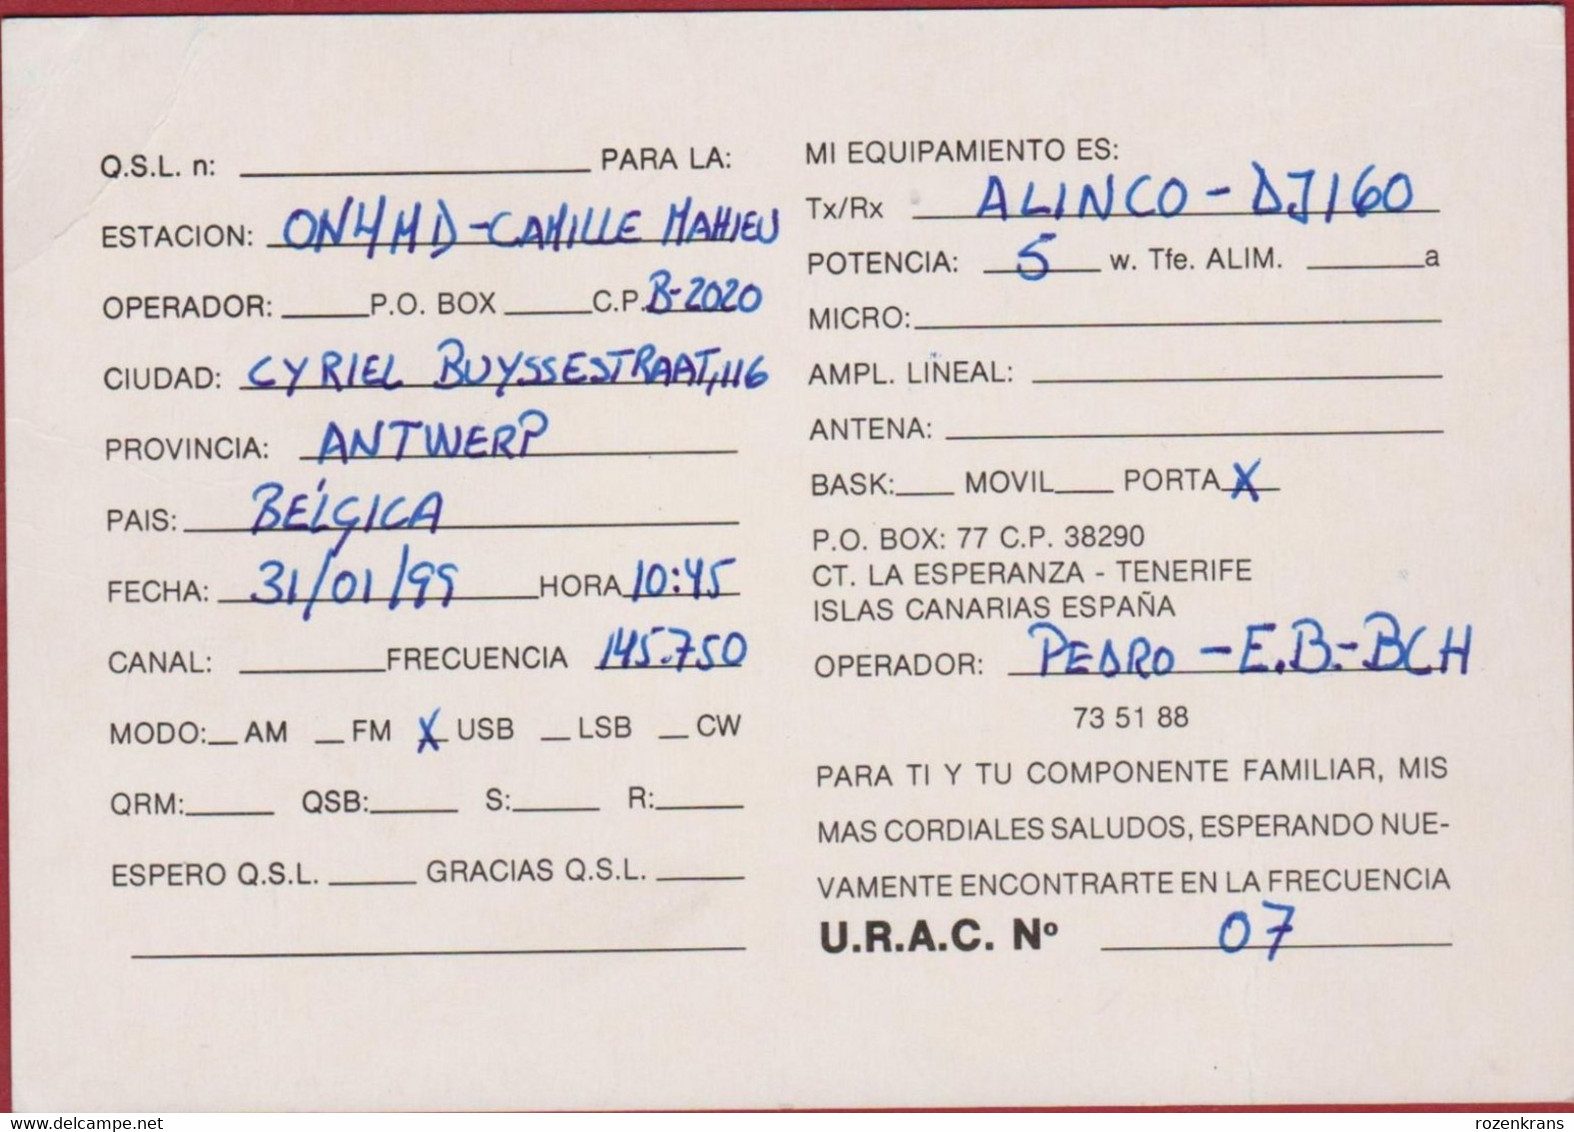 Q.S.L. n: ________ PARA LA:
ESTACION: ON4MD - CAMILLE MAHIEU
OPERADOR: ____ P.O. BOX ____ C.P. B-2020
CIUDAD: CYRIEL BUYSSESTRAAT, 116
PROVINCIA: ANTWERP
PAIS: BÉLGICA
FECHA: 31/01/99 HORA 10:45
CANAL: ____ FRECUENCIA 145.750
MODO: __ AM __ FM X USB __ LSB __ CW
QRM: ____ QSB: ____ S: ____ R: ____
ESPERO Q.S.L. ____ GRACIAS Q.S.L. ____
MI EQUIPAMIENTO ES:
Tx/Rx ALINCO - DJ160
POTENCIA: 5 w. Tfe. ALIM. ____ a
MICRO: ____
AMPL. LINEAL: ____
ANTENA: ____
BASK: ____ MOVIL ____ PORTA X
P.O. BOX: 77 C.P. 38290
CT. LA ESPERANZA - TENERIFE
ISLAS CANARIAS ESPAÑA
OPERADOR: PEDRO - E.B.-BCH
73 51 88
PARA TI Y TU COMPONENTE FAMILIAR, MIS
MAS CORDIALES SALUDOS, ESPERANDO NUE-
VAMENTE ENCONTRARTE EN LA FRECUENCIA
U.R.A.C. Nº 07
www.delcampe.net
rozenkrans